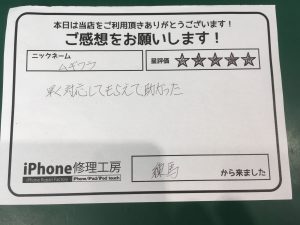 本日は当店をご利用頂きありがとうございます！
ご感想をお願いします！
ニックネーム
ムギワラ
星評価
早く対応してもらえて助かった
iPhone修理工房
iPhone Repair Factory
iPhone/iPad/iPod touch
練馬
から来ました